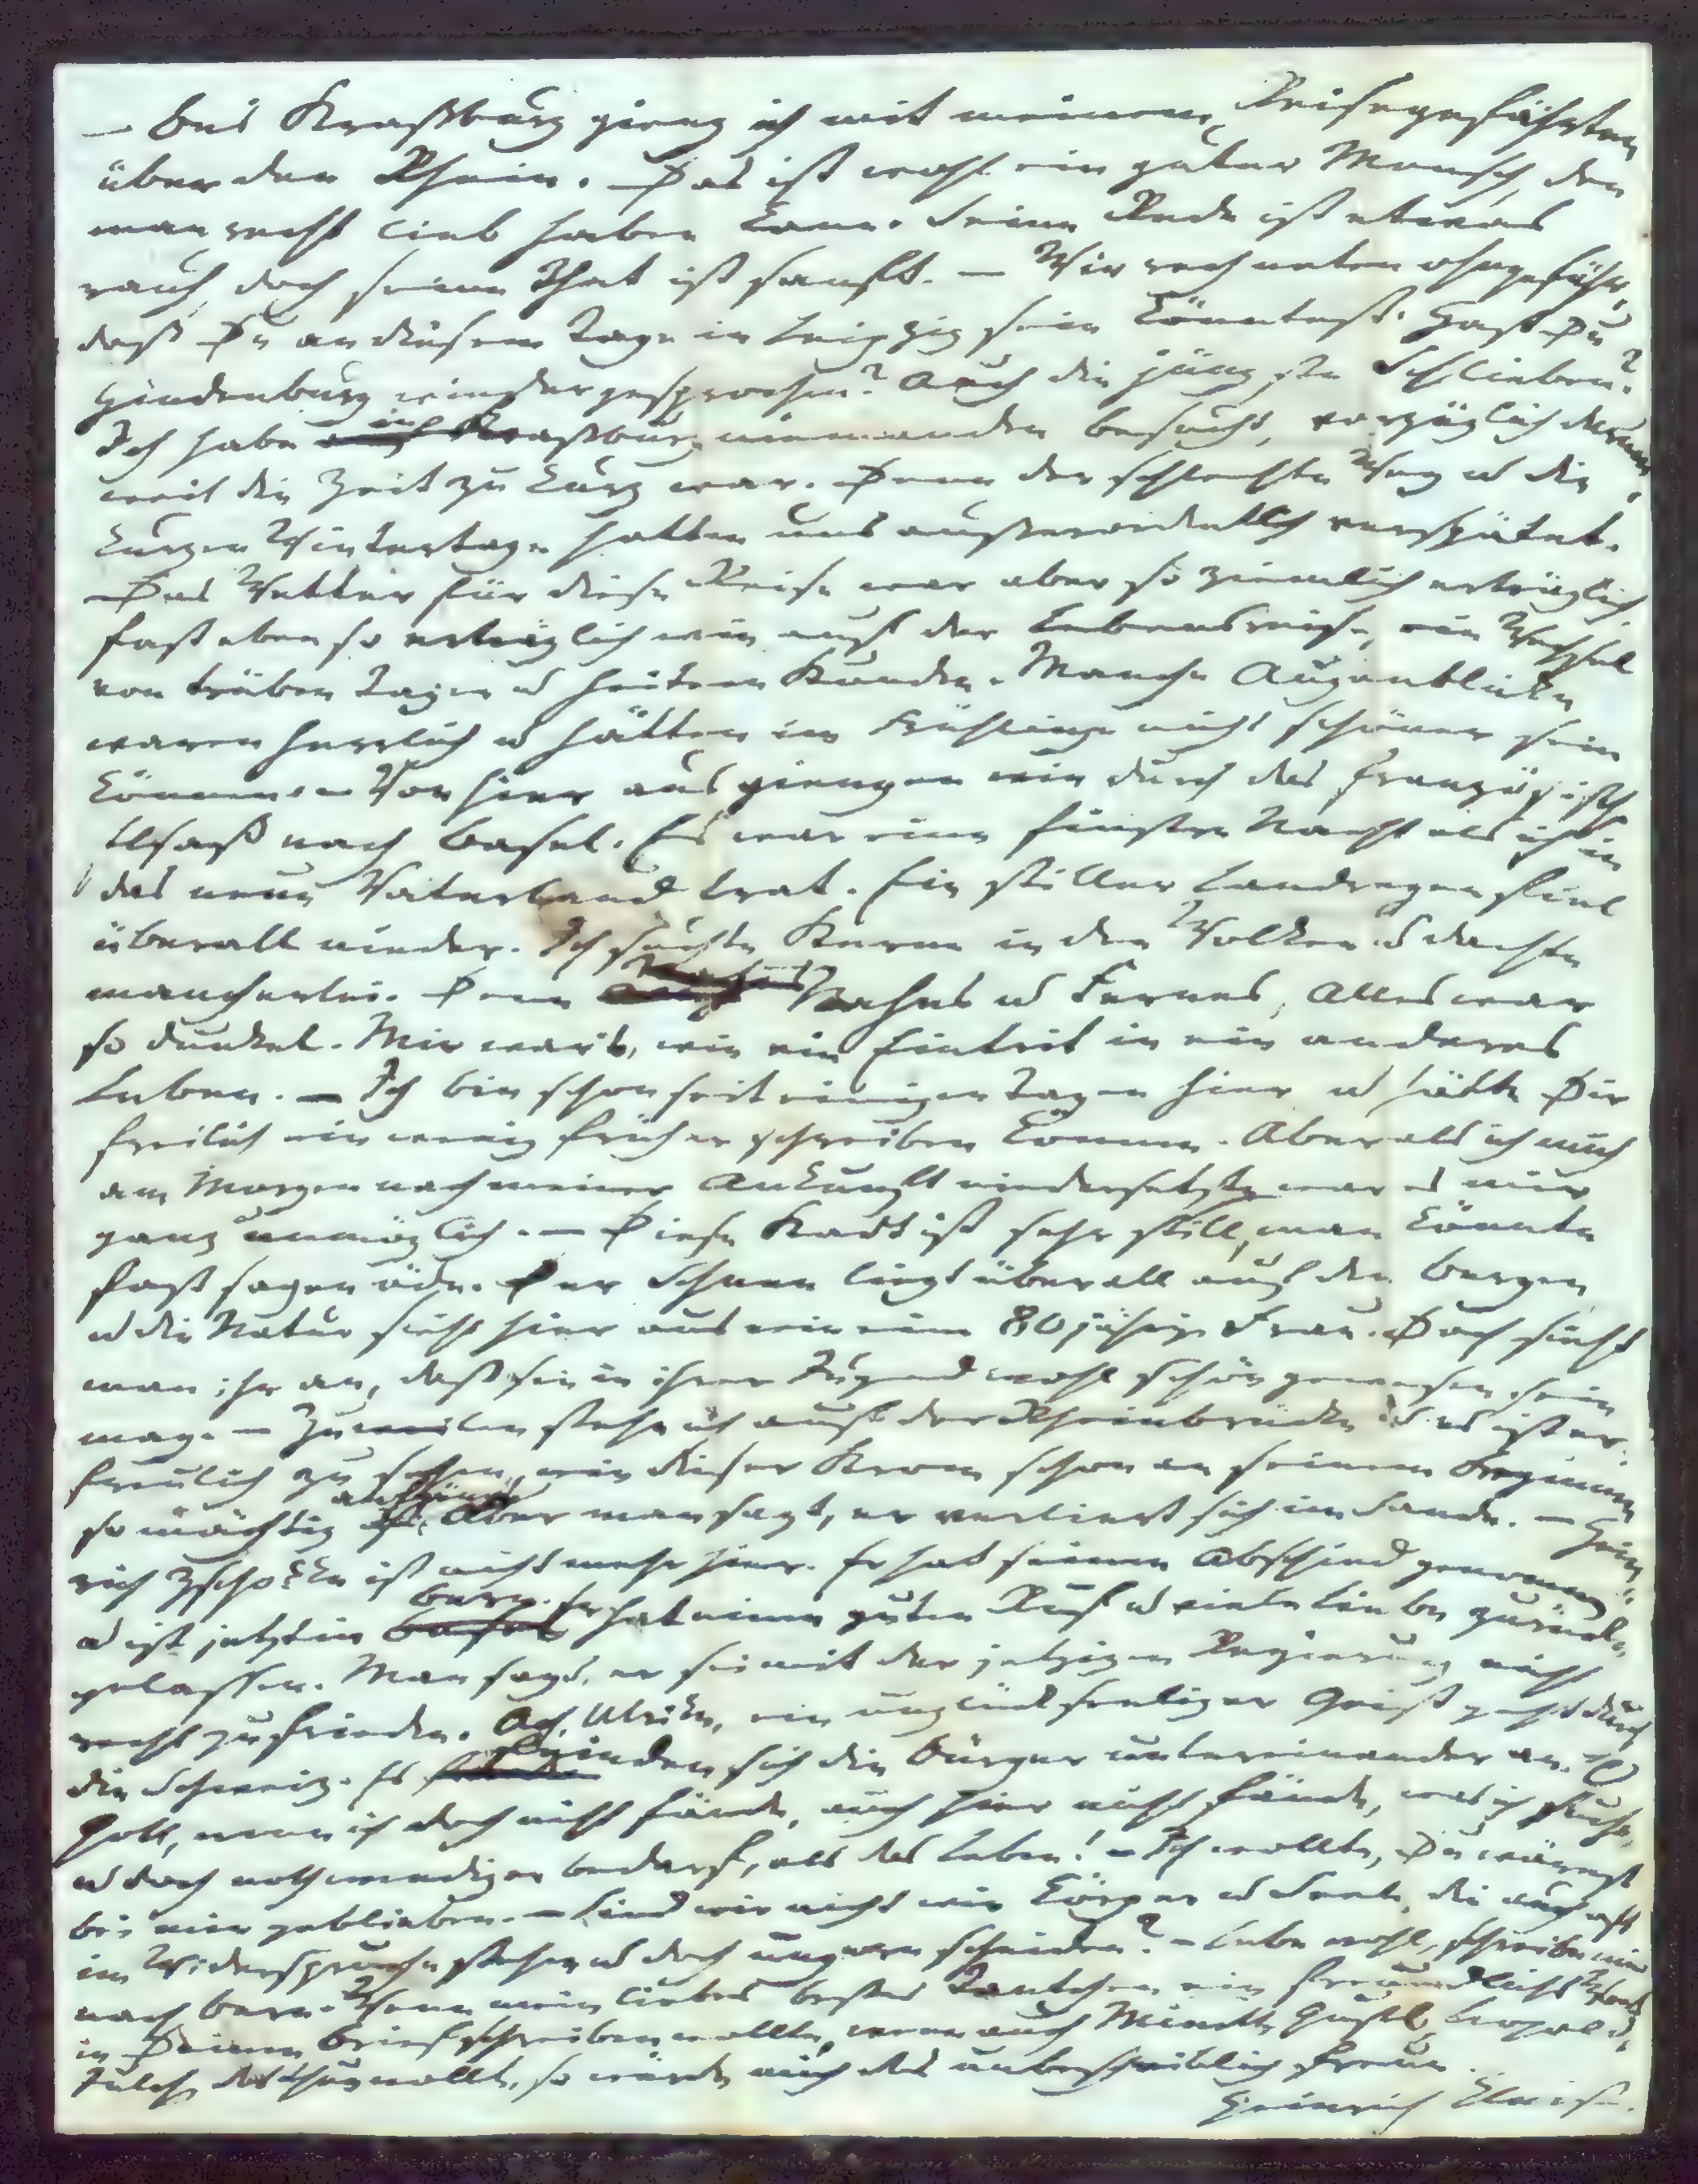 – Bei Strasburg gieng ich mit meinem Reisegefährten
über den Rhein. Das ist wohl ein guter Mensch, den
man recht lieb haben kann. Seine Rede ist etwas
rauh, doch seine That ist sanft. – Wir rechneten ohngefähr,
daß Du an diesem Tage in Leipzig sein könntest. Hast Du
Hindenburg wieder gesprochen? Auch die jüngste Schlieben?
Ich habe in Straßburg niemanden besucht, vorzüglich darum,
weil die Zeit zu kurz war. Denn der schlechte Weg u die
kurzen Wintertage hatten uns außerordentlich verspätet.
Das Wetter für diese Reise war aber so ziemlich erträglich,
fast eben so erträglich wie auf der Lebensreise, ein Wechsel
von trüben Tagen u heitern Stunden. Manche Augenblicke
waren herrlich u hätten im Frühlinge nicht schöner sein
können. – Von hier aus giengen wir durch das französische
Elsaß nach Basel. Es war eine finstre Nacht als ich in
das neue Vaterland trat. Ein stiller Landregen fiel
überall nieder. Ich suchte Sterne in den Wolken u dachte
mancherlei. Denn Nahes u Fernes, Alles war
so dunkel. Mir wars, wie ein Eintrit in ein anderes
Leben. – Ich bin schon seit einigen Tagen hier u hätte Dir
freilich ein wenig früher schreiben können. Aber als ich mich
am Morgen nach meiner Ankunft niedersetzte war es mir
ganz unmöglich. – Diese Stadt ist sehr still, man könnte
fast sagen öde. Der Schnee liegt überall auf den Bergen
u die Natur sieht hier aus wie eine 80jährige Frau. Doch sieht
man ihr an, daß sie in ihrer Jugend wohl schön gewesen sein
mag. – Zuweilen stehe ich auf der Rheinbrücke u es ist er-
freulich zu sehen, wie dieser Strom schon an seinem Beginnen
so mächtig anfängt. Aber man sagt, er verliert sich im Sande. – Hein-
rich Zschokke ist nicht mehr hier. Er hat seinen Abschied genommen
u ist jetzt in Bern. Er hat einen guten Ruf u viele Liebe zurück-
gelassen. Man sagt, er sei mit der jetzigen Regierung nicht
recht zufrieden. Ach, Ulrike, ein unglückseeliger Geist geht durch
die Schweiz. Es feinden sich die Bürger untereinander an. O
Gott, wenn ich doch nicht fände, auch hier nicht fände, was ich suche,
u doch nothwendiger bedarf, als das Leben! – Ich wollte, Du wärest
bei mir geblieben. – Sind wir nicht wie Körper u Seele, die auch oft
im Widerspruche stehen u doch ungern scheiden? – Lebe wohl, schreibe mir
nach Bern. Wenn mein liebes bestes Tantchen ein freundliches Wort
in Deinem Brief schreiben wollte, wenn auch Minette, Gustel, Leopold,
Julchen das thun wollten, so würde mich das unbeschreiblich freuen.
Heinrich Kleist.